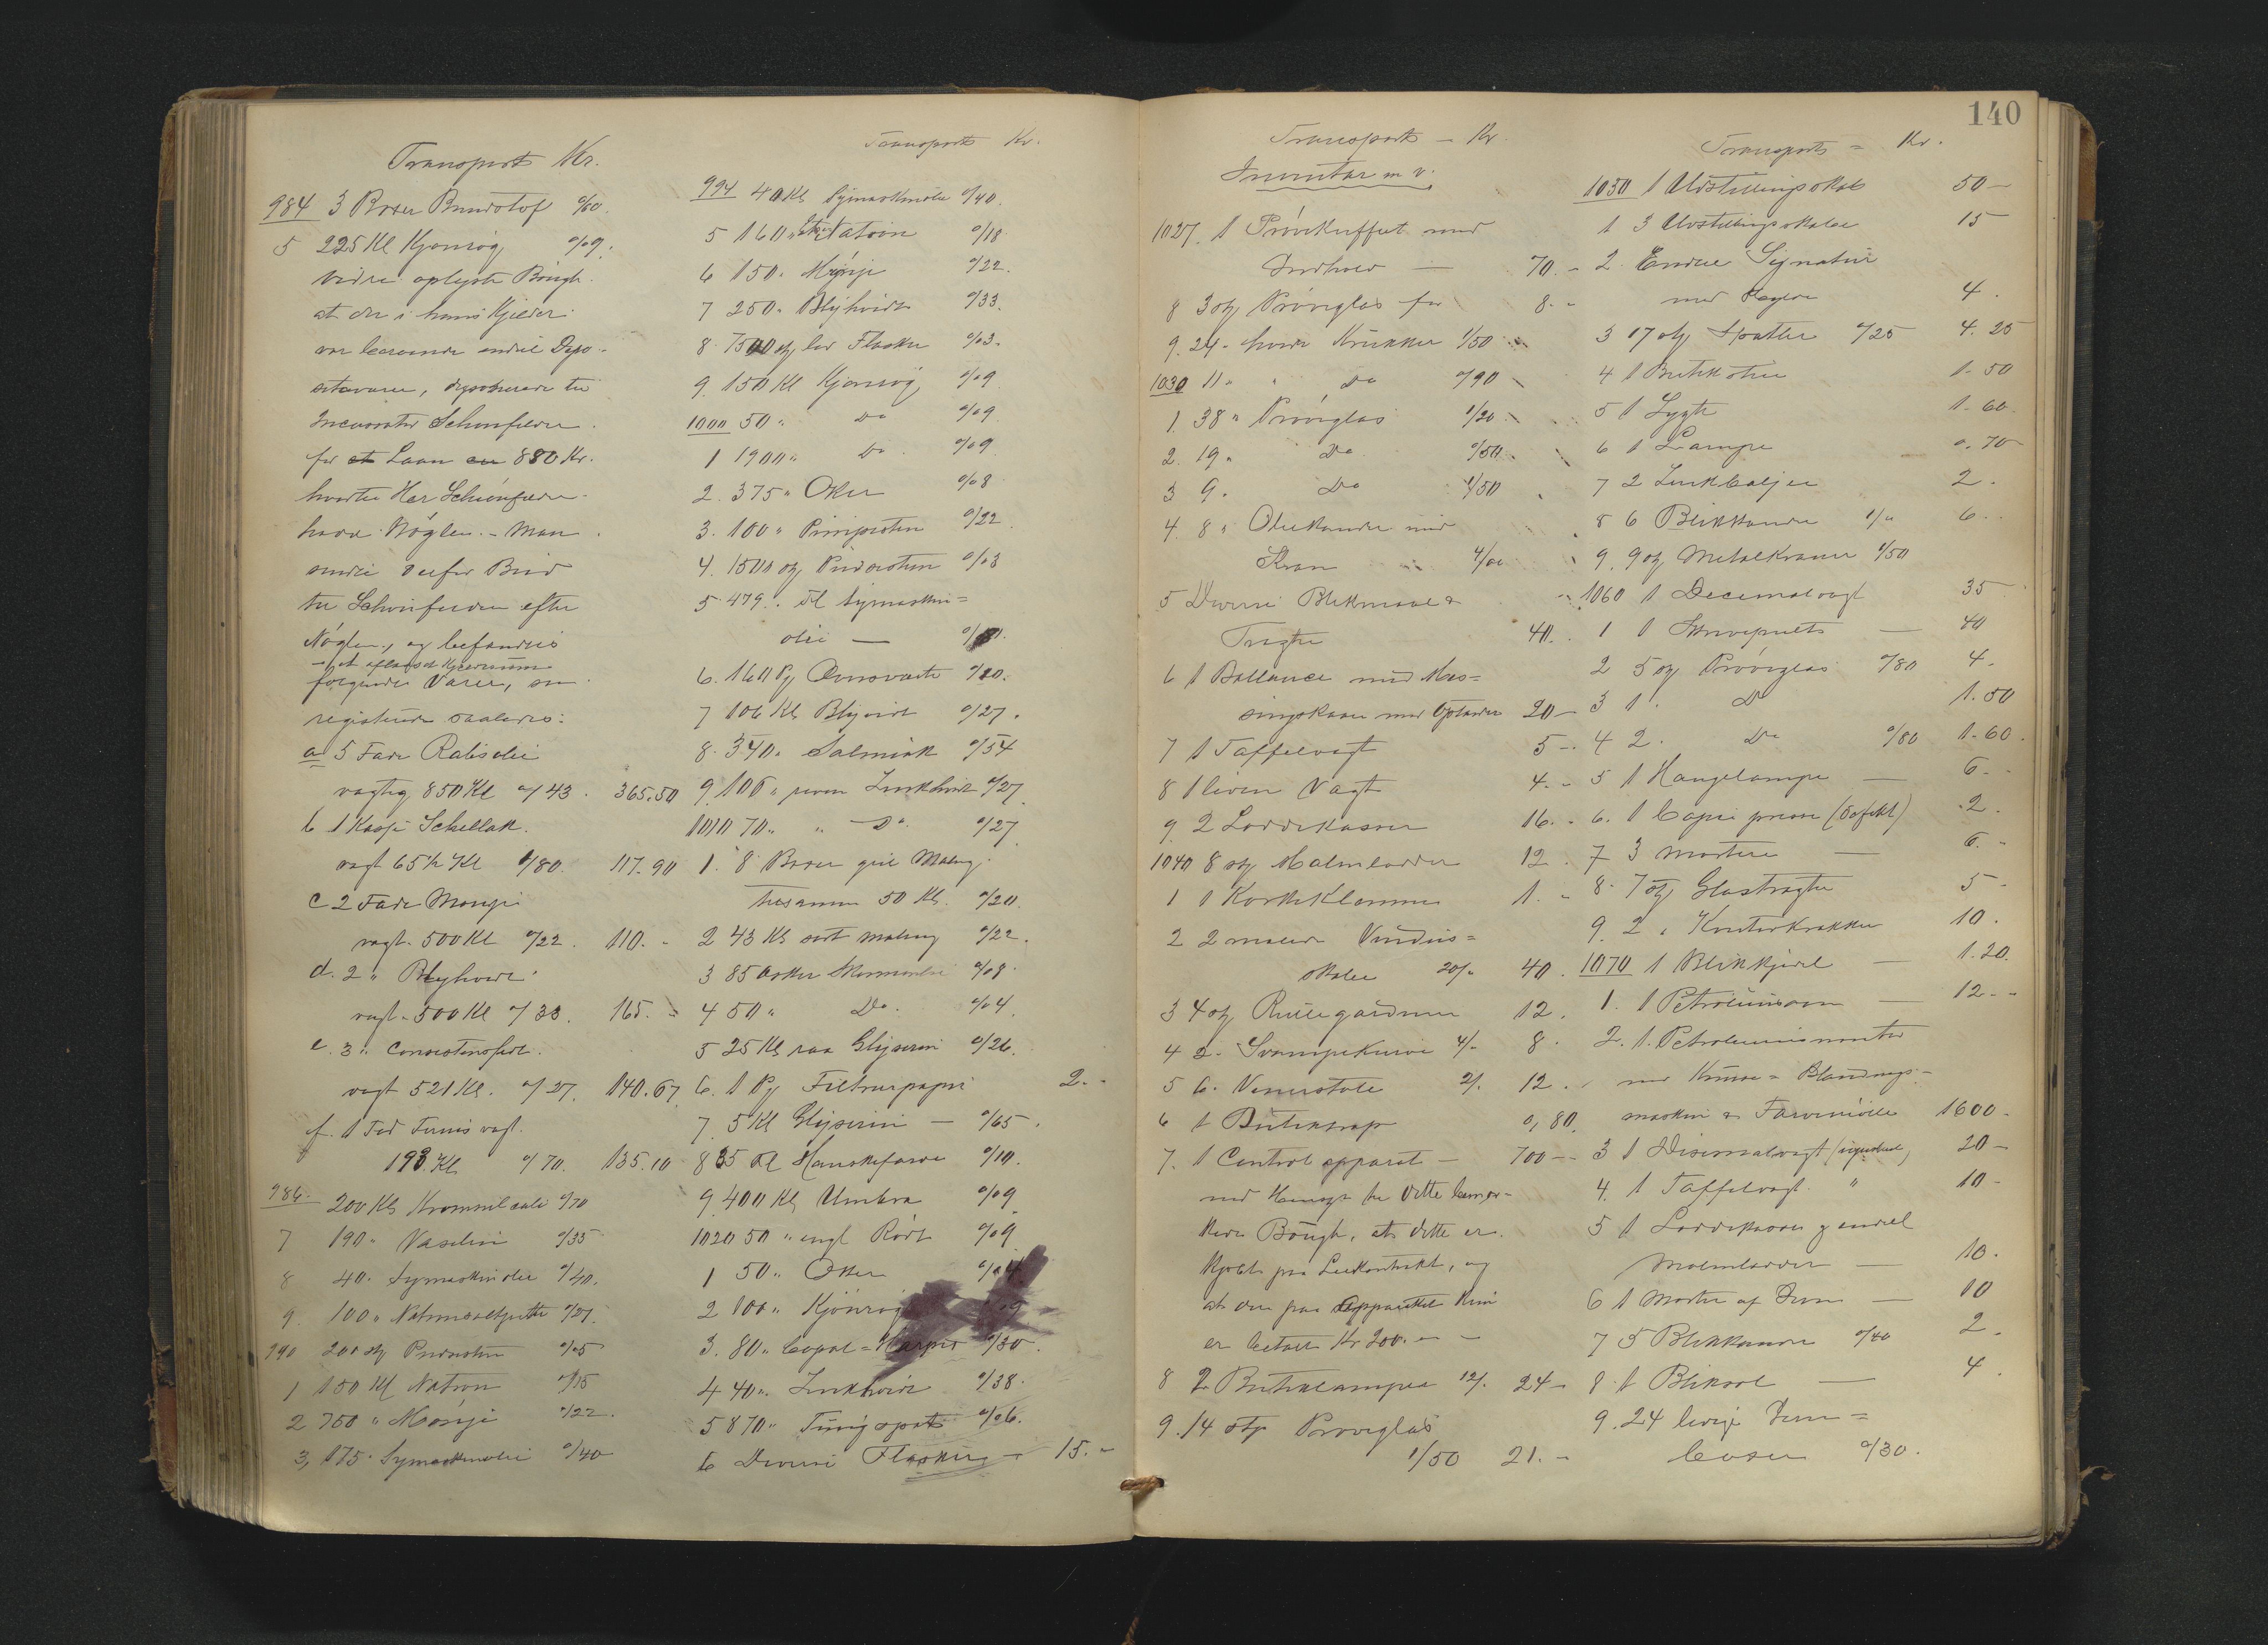 Transport Kr.
984 3 Boxer Bundstof 0/60.
5 225 Kl Kjönrög 0/09.
Videre oplyste Böugh
at der i hans Kjelder
var beroende endel Depo-
sitavarer, deponerede til
Incassator Schönfelder
for et Laan 880 Kr.
hvortil Her Schönfelder
havde Nöglen. - Man
sendte derfor Bud
til Schönfelder efter
Nöglen, og befandtes
- i et aflaaset Kjelderrum
fölgende Varer, som
registreredes saaledes:
a 5 Fade Rabsolie
vægtig 850 Kl a/ 43. 365.50
b 1 Kasse Schellak.
vægt 65½ Kl 1/80. 117.90
c 2 Fade Mönje
vægt. 500 Kl 0/22. 110. -
d. 2 " Blyhvidt
vægt. 500 Kl 0/33. 165. -
e. 3 " Consistensfedt.
vægt 521 Kl. 0/27. 140.67
f. 1 Fad Fernis vægt.
193 Kl 0/70. 135.10
986. 200 Kl Krommelkali 0/70
7 190 " Vaselin 0/35
8 40. Symaskinolie 0/40.
9. 100 " 0/27.
990 200 stk Pudsesten 0/05
1 150 Kl Natron 0/15
2 750 " Mönje 0/22.
3, 175 " Symaskinolie 0/40
Transport Kr.
994 40 Kl Symaskinolie 0/40.
5 160 " Natron 0/18
6 150 " Mönje 0/22.
7 250 " Blyhvidt 0/33.
8. 7500 stk Flasker 0/03.
9. 150 Kl Kjönrög 0/09
1000 50 " Do 0/09
1 1900 " Do 0/09
2. 375 " Oker 0/08
3. 100 " Pimpsten 0/22
4. 1500 stk Pudsesten 0/03
5 479. Fl Symaskin=
olie —
6. 160 Pk Ovnsværte 0/10.
7 106 Kl Blyhvidt 0/27.
8. 340 " Salmiak 0/54
9. 106 " reven Zinkhvidt 0/27
1010 70 " " Do. 0/27
1. 8 Boxer gul Maling
tilsammen 50 Kl. 0/20.
2 43 Kl sort Maling 0/22.
3 85 Æsker 0/08.
4 50 " Do. 0/04.
5 25 Kl raa Glyserin 0/26.
6. 1 Pk Filtrerpapir 2. -
7. 5 Kl Glyserin — 0/65.
8 35 Fl Hanskefarve 0/10.
9. 400 Kl Umbra 0/09
1020 50 " engl Rödt 0/09
1 50 " Oker
2 100 " Kjönrög
3. 80 " Copal=Harpix 0/30.
4 40 " Zinkhvidt 0/38.
5 870 " Tungspat 0/06.
6 Diverse Flasker — 15. -
Transport — Kr
Inventar m v.
1027. 1 Prövekuffert med
Indhold — 70. -
8 3 stk Pröveglas for 8. -
9. 24 - hvide Krukker 1/50
1030 11 " " Do 0/90
1. 38 " Pröveglas 1/20.
2. 19 " Do 0/50.
3 9. Do 1/50
4. 8 " Oliekander med
Kran 4/00
5 Diverse Blikmaal &
Tragte 40.
6 1 Ballance med Mes=
singskaaler med Oplodder 20 -
7 1 Taffelvægt 5 -
8 1 liden Vægt 4. -
9. 2 Loddekasser 16. -
1040 8 stk Malmlodder 12.
1 1 Korkeklemme 1. -
2 2 malede Vindus=
skabe 20/. 40.
3 4 stk Rullegardiner 12.
4 2. Svampekurve 4/. 8.
5 6. Vinerstole 2/. 12.
6 1 Butiktrap 0,80.
7. 1 Control apparat - 700 -
med Hensyn til dette bemær-
kede Böugh, at dette er
kjöbt paa Leiekontrakt, og
at der paa Apparatet kun
er betalt Kr 200. -
8 2 Butiklamper 12/. 24 -
9. 14 stk Pröveglas
1/50 21. -
140
Transport = Kr.
1050 1 Udstillingsskab 50 -
1 3 Udstillingsskabe 15
2. Endel Signatur
med 4.
3 17 stk Spatler 0/25 4.25
4 1 Butikstige 1.50
5 1 Lygte 1.60.
6 1 Lampe 0.70
7 2 Zinkbaljer 2.
8 6 Blikkander 1/. 6. -
9. 9 stk Metalkraner 1/50
1060 1 Decimalvægt 35
1 1 Skrivepult — 40
2 5 stk Pröveglas 0/80 4.
3 1. Do 1.50
4 2. Do 0/80 1.60.
5 1 Hængelampe — 6. -
6. 1 Copi presse (Defekt) 2.
7 3 mortere — 6. -
8. 7 stk Glastragte 5 -
9. 2 " Kontorkrakker 10.
1070 1 Blikkjedel — 1.20.
1. 1 Petroleumsovn — 12. -
2. 1. Petroleumsmotor
med Knuse= Blandings-
maskin & Farvemölle 1600 -
3 1 Disimalvægt (ujusteret) 20 -
4. 1 Taffelvægt " 10 -
5 1 Loddekasse & endel
Malmlodder — 10.
6 1 Morter af Jern — 10
7 5 Blikkander 0/40 2.
8. 1 Blikool — 4.
9. 24 ledige Jern=
boxer 0/30.